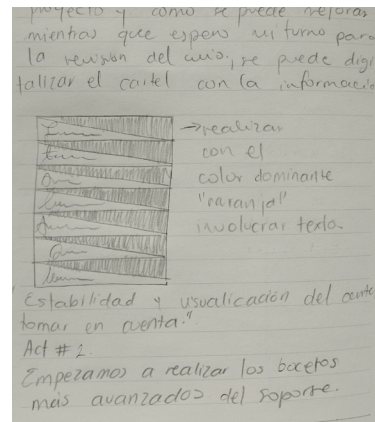 proyecto y como se puede mejorar
mientras que espero mi turno para
la revisión del mio., se puede digi
talizar el cartel con la informació
→ realizar
con el
color dominante
"naranja"
involucrar texto.
Estabilidad y visualicación del
tomar en cuenta."
Act # 2
Empezamos a realizar los bocetos
más avanzados del soporte.